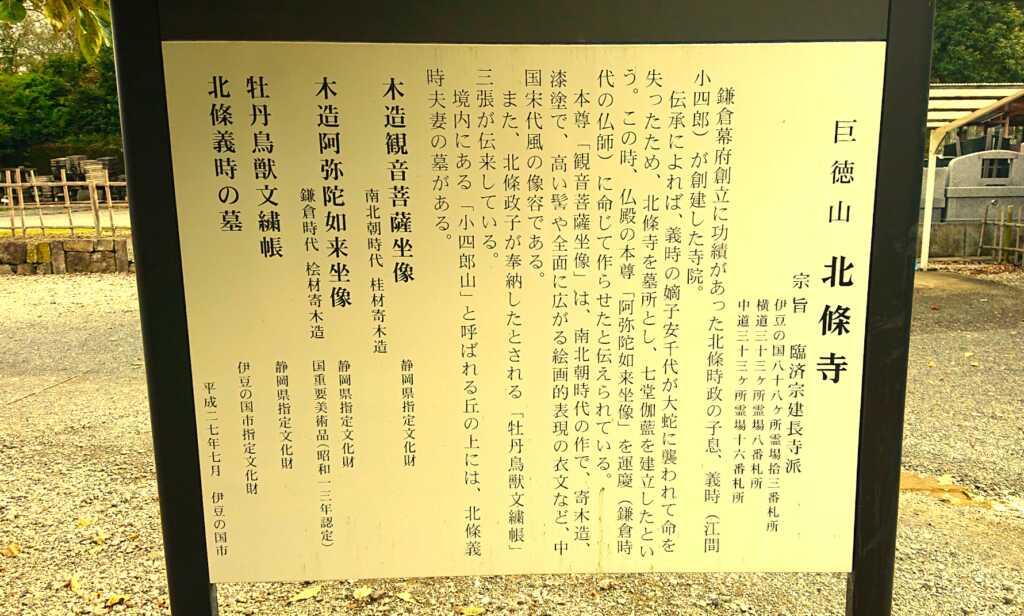 巨徳山 北條寺
宗旨 臨済宗建長寺派
伊豆の国八十八ヶ所霊場拾三番札所
横道三十三ヶ所霊場八番札所
中道三十三ヶ所霊場十六番札所
鎌倉幕府創立に功績があった北條時政の子息、義時（江間
小四郎）が創建した寺院。
伝承によれば、義時の嫡子安千代が大蛇に襲われて命を
失ったため、北條寺を墓所とし、七堂伽藍を建立したとい
う。この時、仏殿の本尊「阿弥陀如来坐像」を運慶（鎌倉時
代の仏師）に命じて作らせたと伝えられている。
本尊「観音菩薩坐像」は、南北朝時代の作で、寄木造、
漆塗で、高い髻や全面に広がる絵画的表現の衣文など、中
国宋代風の像容である。
また、北條政子が奉納したとされる「牡丹鳥獣文繍帳」
三張が伝来している。
境内にある「小四郎山」と呼ばれる丘の上には、北條義
時夫妻の墓がある。
木造観音菩薩坐像 静岡県指定文化財
南北朝時代 桂材寄木造
木造阿弥陀如来坐像 静岡県指定文化財
鎌倉時代 桧材寄木造 国重要美術品（昭和一三年認定）
牡丹鳥獣文繍帳 静岡県指定文化財
北條義時の墓 伊豆の国市指定文化財
平成二七年七月 伊豆の国市